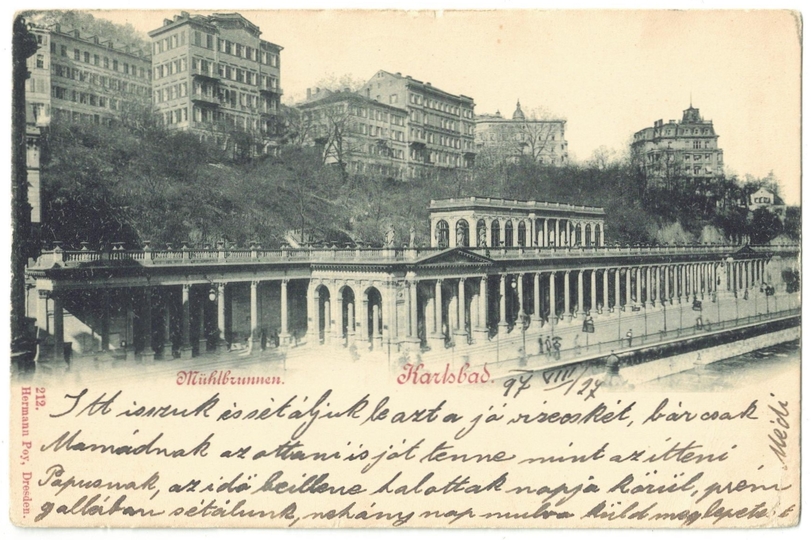 Mühlbrunnen.
Karlsbad.
97 VIII/27
212.
Hermann Poy, Dresden.
Itt iszuk és sétáljuk le azt a jó vizecskét, bárcsak
Mamádnak az ottani is jót tenne mint az itteni
Papusnak, az idő beillene halottak napja körül, prém
gallérban sétálunk, nehány nap mulva küld meglepetést
Médi